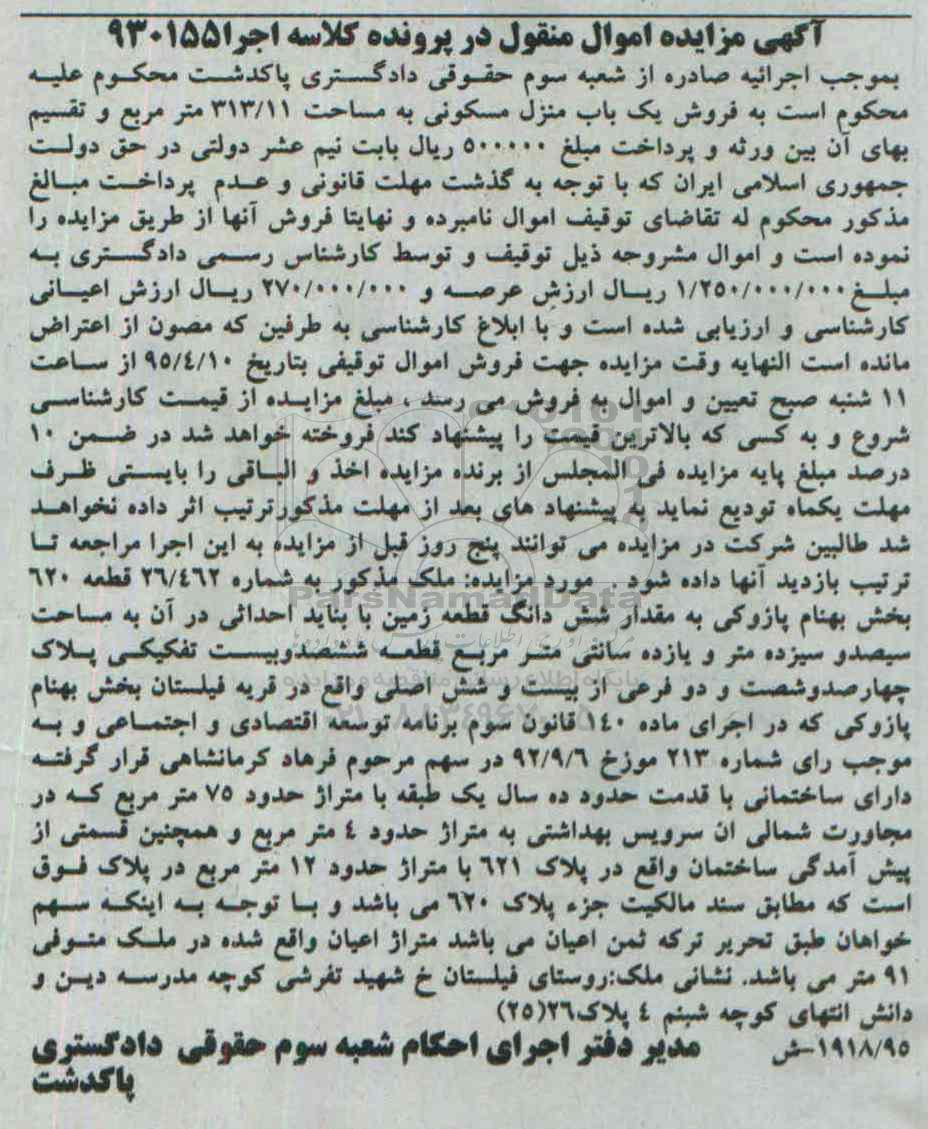 آگهی مزایده اموال منقول در پرونده کلاسه اجرا۹۳۰۱۵۵
بموجب اجرائیه صادره از شعبه سوم حقوقی دادگستری پاکدشت محکوم علیه
محکوم است به فروش یک باب منزل مسکونی به مساحت ۳۱۳/۱۱ متر مربع و تقسیم
بهای آن بین ورثه و پرداخت مبلغ ۵۰۰۰۰۰ ریال بابت نیم عشر دولتی در حق دولت
جمهوری اسلامی ایران که با توجه به گذشت مهلت قانونی و عدم پرداخت مبالغ
مذکور محکوم له تقاضای توقیف اموال نامبرده و نهایتا فروش آنها از طریق مزایده را
نموده است و اموال مشروحه ذیل توقیف و توسط کارشناس رسمی دادگستری به
مبلغ ۱/۲۵۰/۰۰۰/۰۰۰ ریال ارزش عرصه و ۲۷۰/۰۰۰/۰۰۰ ریال ارزش اعیانی
کارشناسی و ارزیابی شده است و با ابلاغ کارشناسی به طرفین که مصون از اعتراض
مانده است النهایه وقت مزایده جهت فروش اموال توقیفی بتاریخ ۹۵/۴/۱۰ از ساعت
۱۱ شنبه صبح تعیین و اموال به فروش می رسد ، مبلغ مزایده از قیمت کارشناسی
شروع و به کسی که بالاترین قیمت را پیشنهاد کند فروخته خواهد شد در ضمن ۱۰
درصد مبلغ پایه مزایده فی المجلس از برنده مزایده اخذ و الباقی را بایستی ظرف
مهلت یکماه تودیع نماید به پیشنهاد های بعد از مهلت مذکورترتیب اثر داده نخواهد
شد طالبین شرکت در مزایده می توانند پنج روز قبل از مزایده به این اجرا مراجعه تا
ترتیب بازدید آنها داده شود . مورد مزایده: ملک مذکور به شماره ۲۶/۴۶۲ قطعه ۶۲۰
ParsNamadData
بخش بهنام پازوکی به مقدار شش دانگ قطعه زمین با بناید احداثی در آن به مساحت
سیصدو سیزده متر و یازده سانتی متر مربع قطعه ششصدوبیست تفکیکی پلاک
پایگاه اطلاع رسانی مناقصه و مزایده
چهارصدوشصت و دو فرعی از بیست و شش اصلی واقع در قریه فیلستان بخش بهنام
پازوکی که در اجرای ماده ۱۴۰ قانون سوم برنامه توسعه اقتصادی و اجتماعی و به
موجب رای شماره ۲۱۳ مورخ ۹۲/۹/۶ در سهم مرحوم فرهاد کرمانشاهی قرار گرفته
دارای ساختمانی با قدمت حدود ده سال یک طبقه با متراژ حدود ۷۵ متر مربع که در
مجاورت شمالی ان سرویس بهداشتی به متراژ حدود ۴ متر مربع و همچنین قسمتی از
پیش آمدگی ساختمان واقع در پلاک ۶۲۱ با متراژ حدود ۱۲ متر مربع در پلاک فوق
است که مطابق سند مالکیت جزء پلاک ۶۲۰ می باشد و با توجه به اینکه سهم
خواهان طبق تحریر ترکه ثمن اعیان می باشد متراژ اعیان واقع شده در ملک متوفی
۹۱ متر می باشد. نشانی ملک:روستای فیلستان خ شهید تفرشی کوچه مدرسه دین و
دانش انتهای کوچه شبنم ۴ پلاک۲۶(۲۵)
۱۹۱۸/۹۵-ش مدیر دفتر اجرای احکام شعبه سوم حقوقی دادگستری
پاکدشت